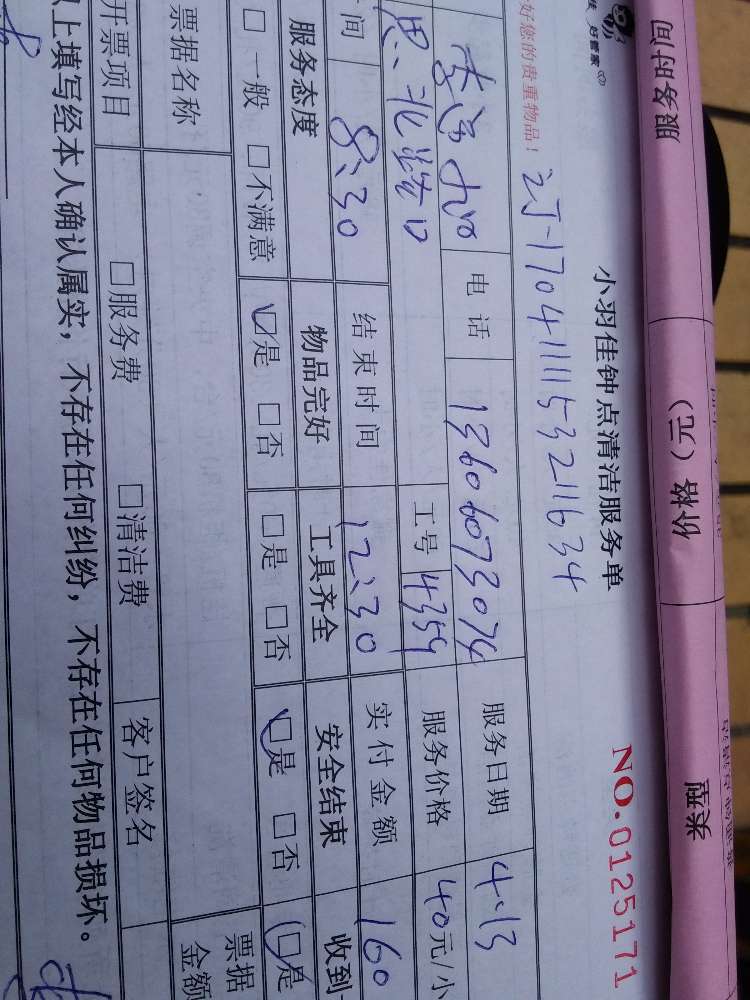 服务时间 价格（元） 类型
好管家
好您的贵重物品！
小羽佳钟点清洁服务单
NO.0125171
订-1704111153211634
电话 13606073074 服务日期 4.13
路口 工号 4359 服务价格 40元/小
间 8:30 结束时间 12:30 实付金额 160
服务态度 物品完好 工具齐全 安全结束 收到
□一般 □不满意 □是 □否 □是 □否 □是 □否 □是
票据名称 票据金额
开票项目 □服务费 □清洁费 客户签名
以上填写经本人确认属实，不存在任何纠纷，不存在任何物品损坏。